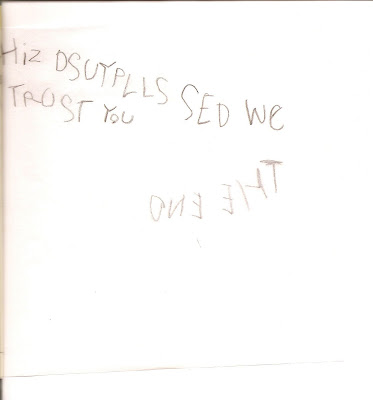 Hiz DSUYPLLS SED We
TRUST You
THE END